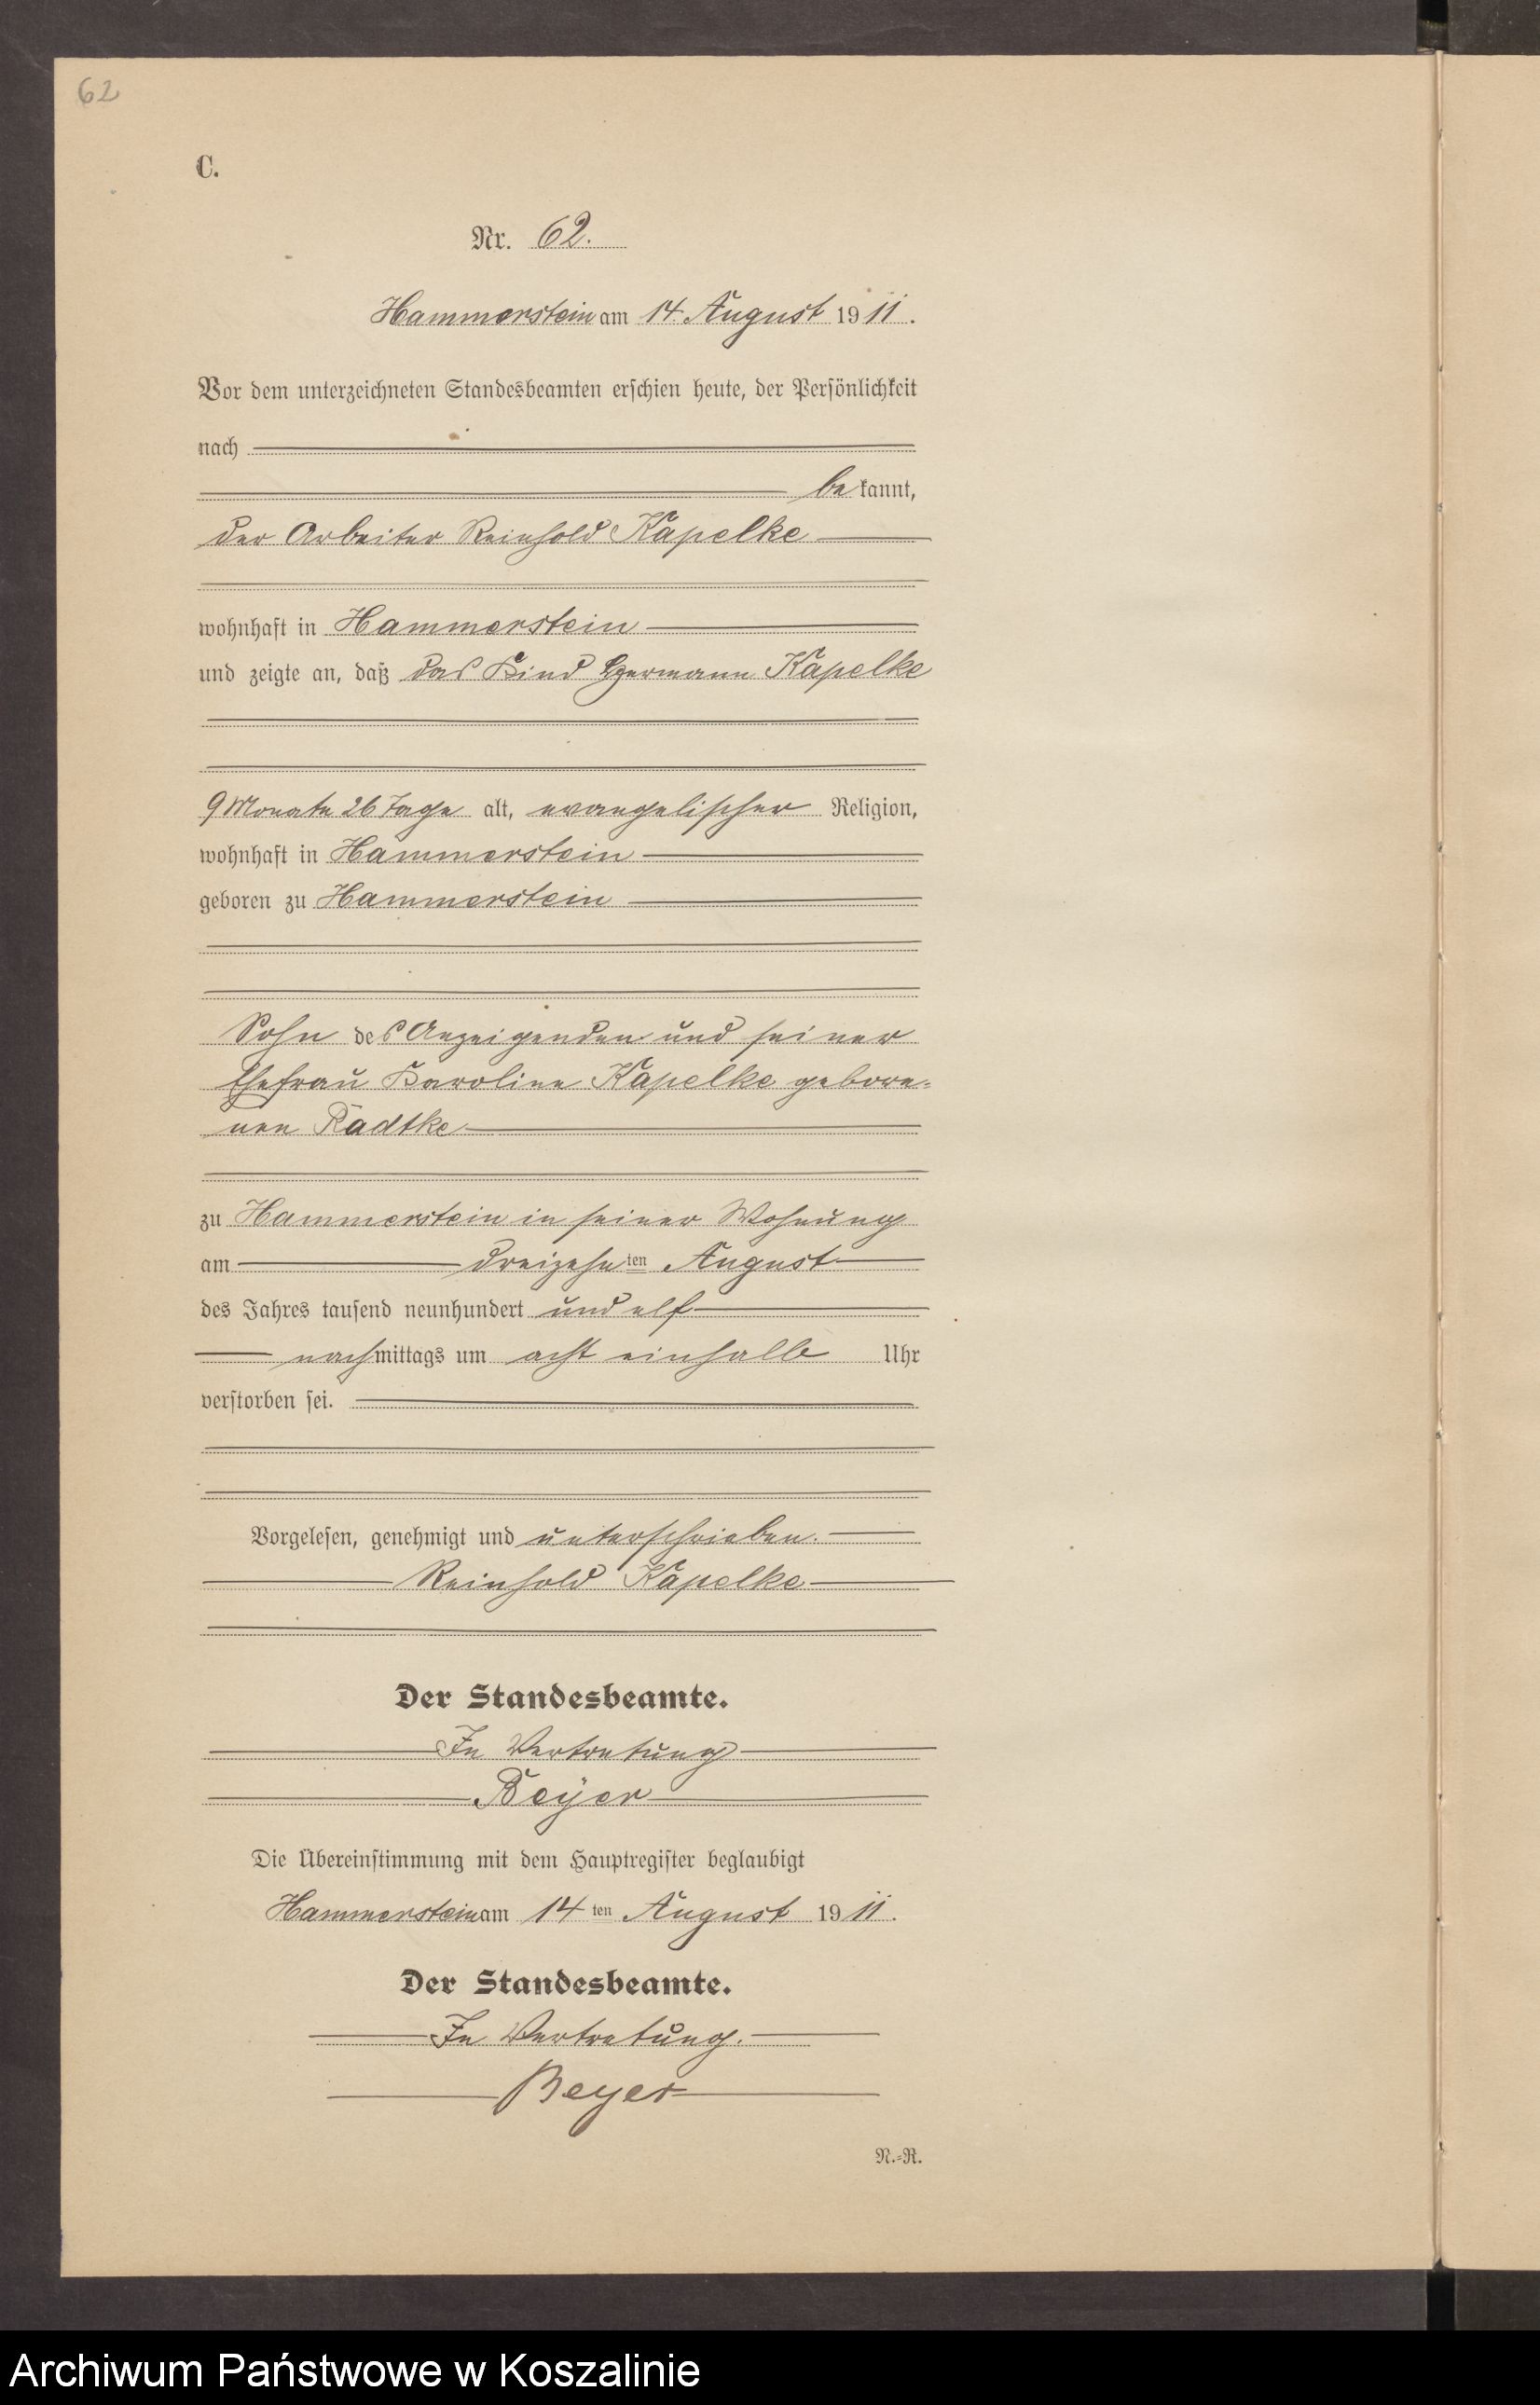 62
C.
Nr. 62.
Hammerstein am 14. August 1911.
Vor dem unterzeichneten Standesbeamten erschien heute, der Persönlichkeit
nach
be kannt,
der Arbeiter Reinhold Kapelke
wohnhaft in Hammerstein
und zeigte an, daß das Kind Hermann Kapelke
9 Monate 26 Tage alt, evangelischer Religion,
wohnhaft in Hammerstein
geboren zu Hammerstein
Sohn des Anzeigenden und seiner
Ehefrau Karoline Kapelke gebore-
nen Radtke
zu Hammerstein in seiner Wohnung
am dreizehnten August
des Jahres tausend neunhundert und elf
nachmittags um acht einhalb Uhr
verstorben sei.
Vorgelesen, genehmigt und unterschrieben.
Reinhold Kapelke
Der Standesbeamte.
In Vertretung
Beyer
Die Übereinstimmung mit dem Hauptregister beglaubigt
Hammerstein am 14ten August 1911.
Der Standesbeamte.
In Vertretung.
Beyer
N.-R.
Archiwum Państwowe w Koszalinie